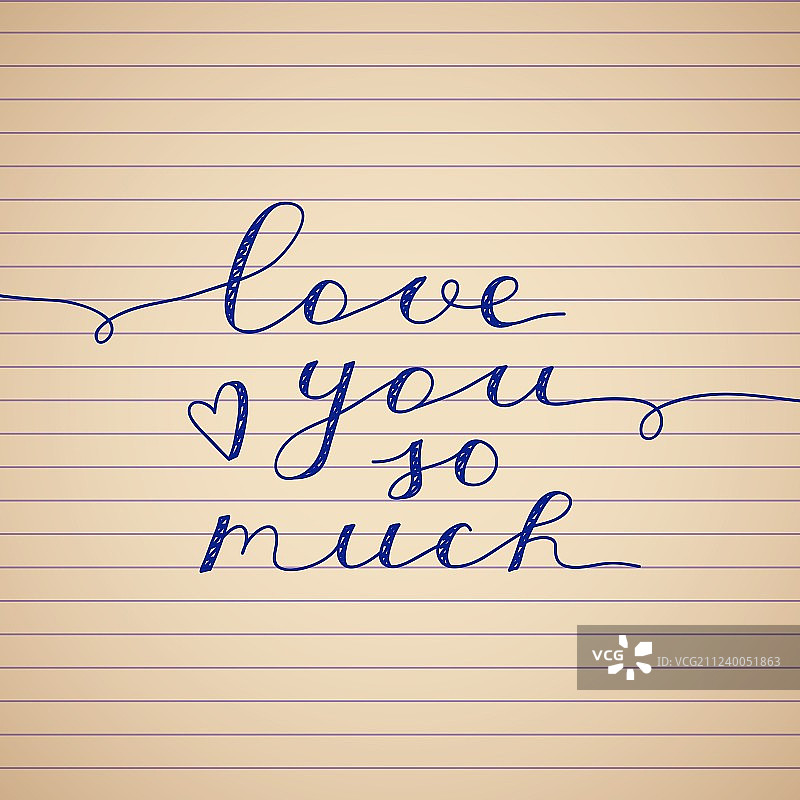 love
you
so
much
VCG ID: VCG211240051863